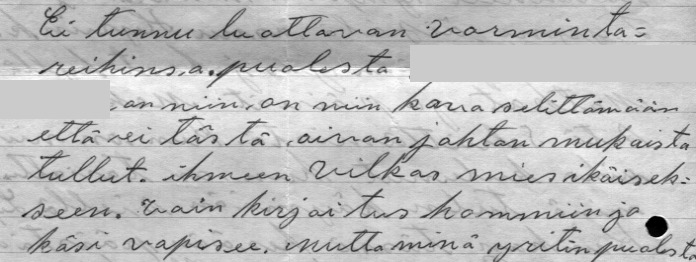 Ei tunnu luottavan varminta=
reihinsa. puolesta
on niin, on niin kova selittämään
että ei tästä aivan johtan mukaista
tullut. ihmeen vilkas mies ikäisek=
seen. vain kirjoitus hommiin ja
käsi vapisee. mutta minä yritin puolest